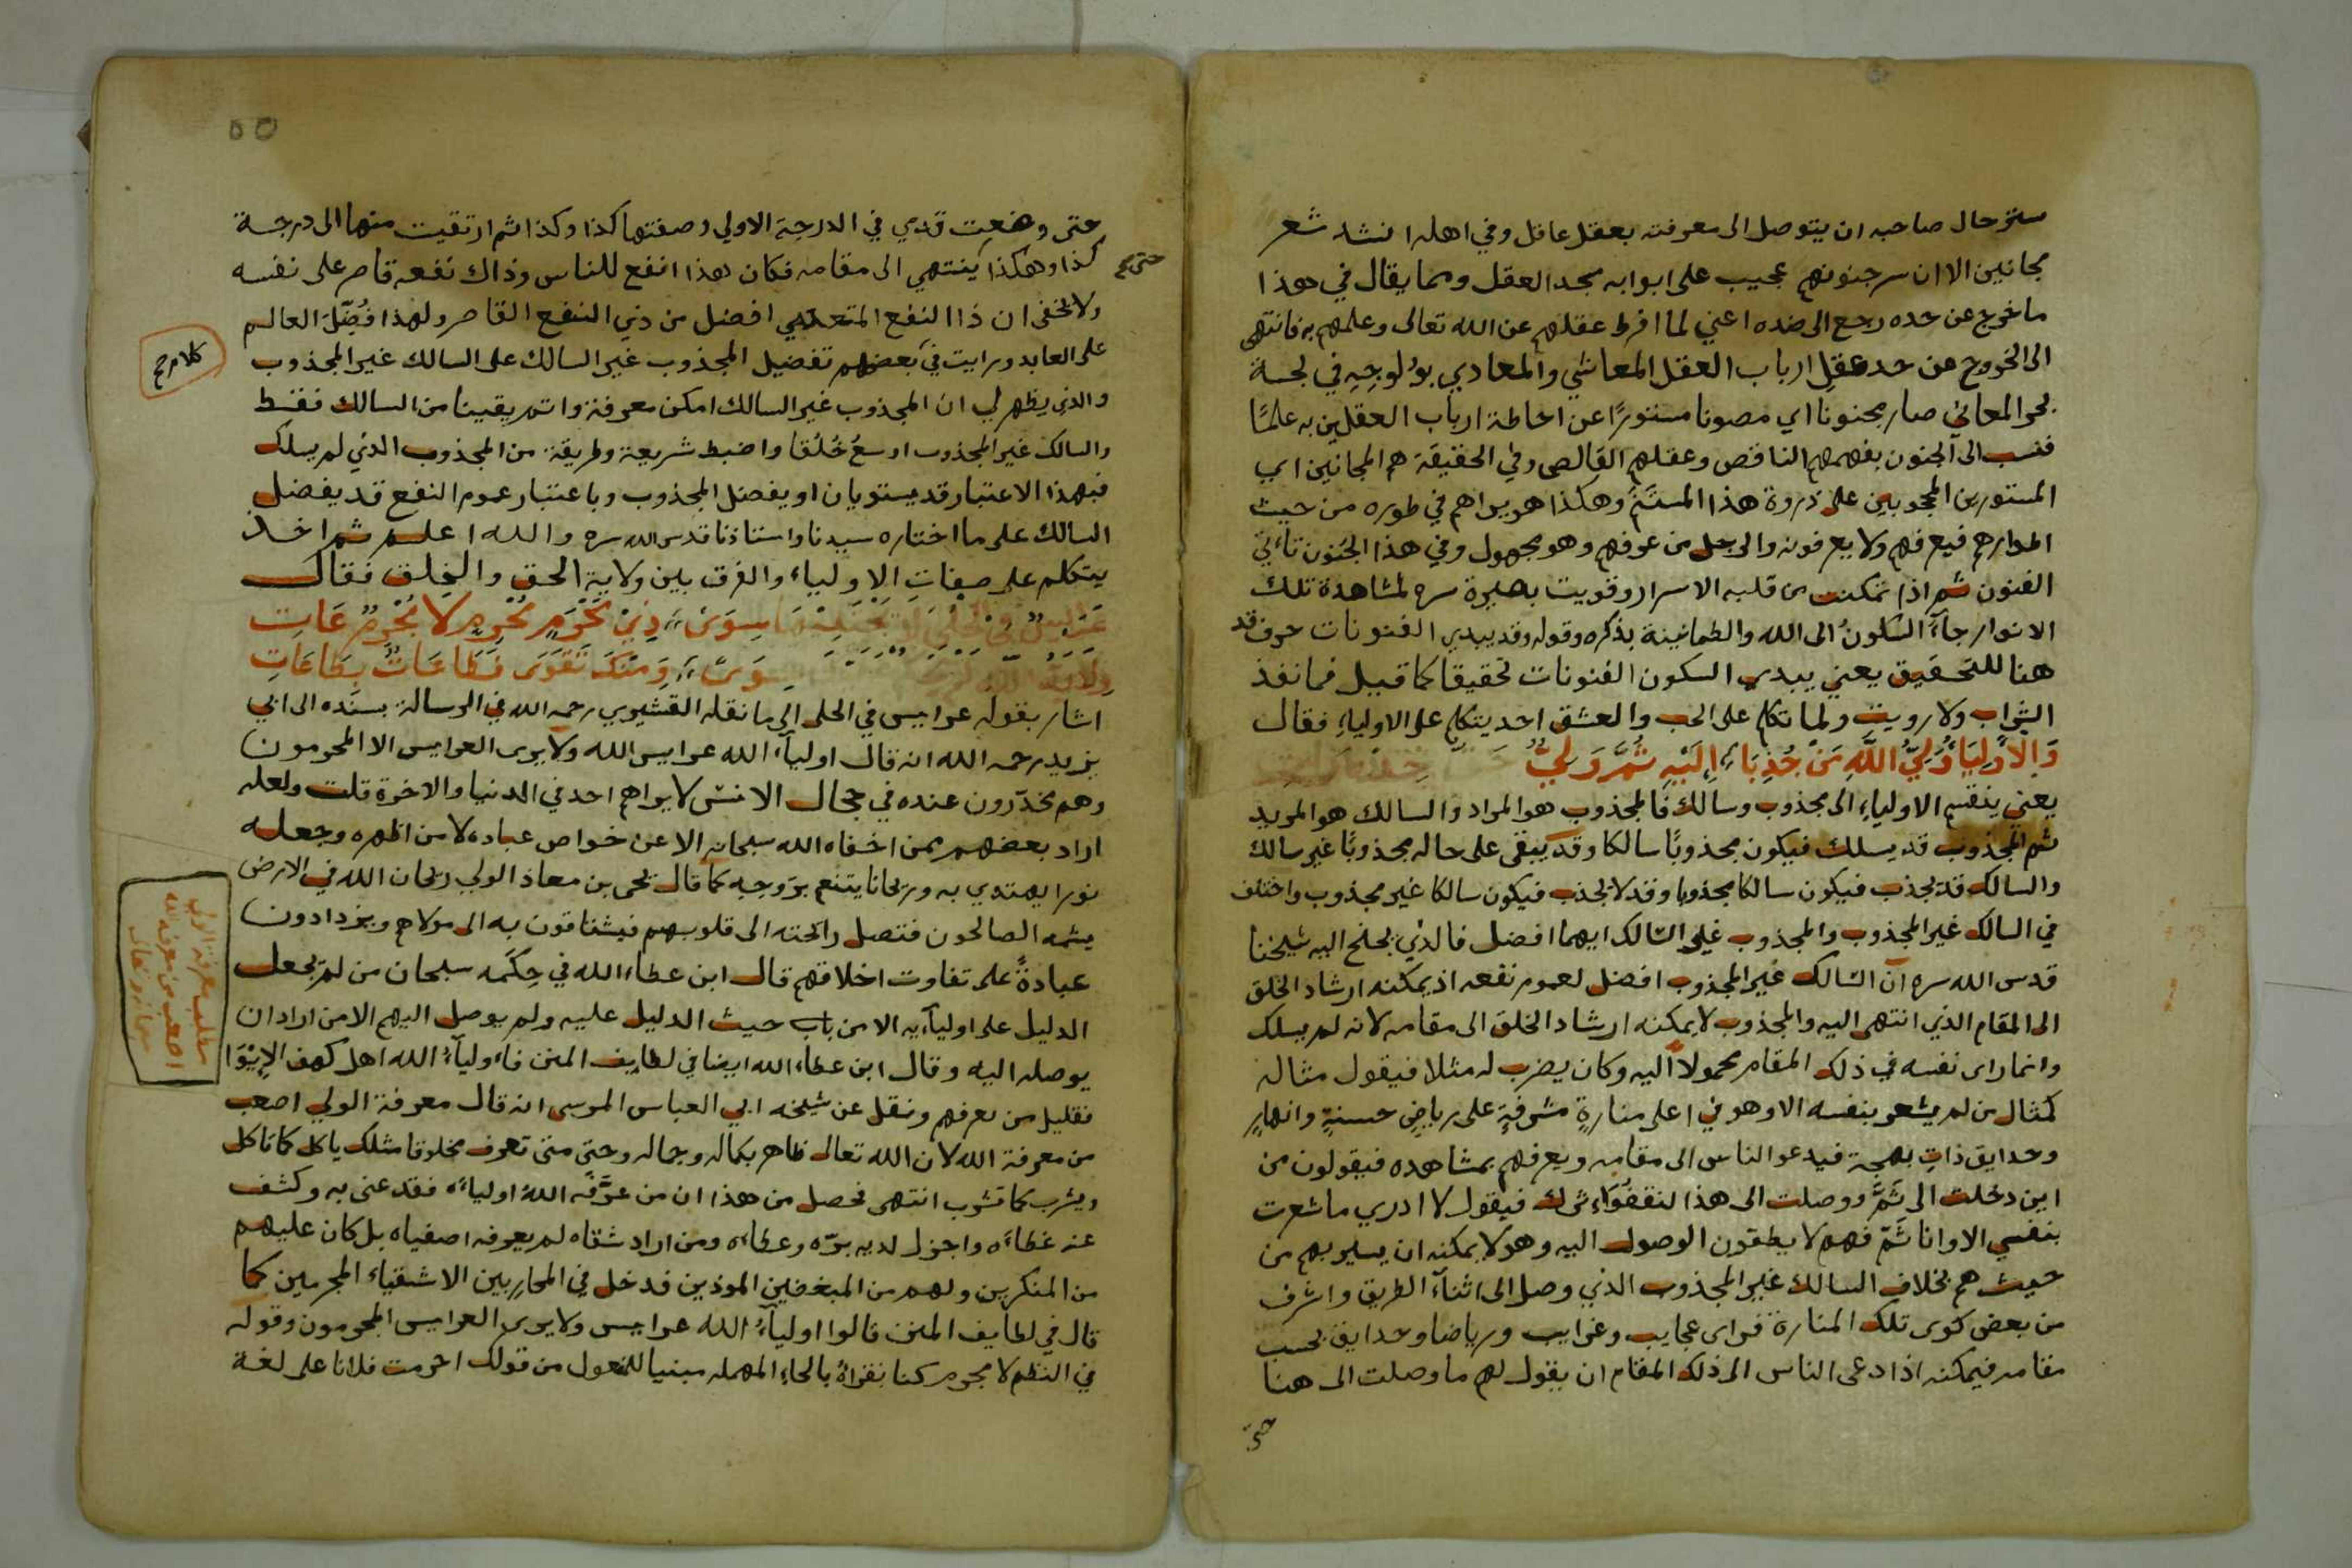 ستر حال صاحبه ان يتوصل الى معرفته بعقل عاقل وفي اهله انشد شعر
مجانين الا ان سر جنونهم عجيب على ابوابه يسجد العقل ومما يقال في هذا
ما خرج عن حده رجع الى ضده اعني لما افرط عقلهم عن الله تعالى وعلمهم به فانتهى
الى الخروج عن حد عقل ارباب العقل المعاشي والمعادي بولوجه في لجة
بحر المعاني صار مجنونا اي مصونا مستورًا عن احاطة ارباب العقلين به علمًا
فنسب الى الجنون بفهمهم الناقص وعقلهم القالص وفي الحقيقة هم المجانين اي
المستورين المحجوبين على ذروة هذا المسنم وهكذا هو يراهم في طوره من حيث
اطوارهم فيعرفهم ولا يعرفونه والرجل من عرفهم وهو مجهول وفي هذا الجنون تأتي
الفنون ثم اذا تمكنت من قلبه الاسرار وقويت بصيرة سره لمشاهدة تلك
الانوار جآء السكونُ الى الله والطمانينة بذكره وقوله وقد يبدي الفنونات حرف قد
هنا للتحقيق يعني يبدي السكون الفنونات تحقيقا كما قيل فما نفذ
الشراب ولا رويت ولما تكلم على الحب والعشق اخذ يتكلم على الاولياء فقال
وَالاولِيَاءُ وَلِيُّ اللَّهِ مَنْ جُذِبَا إِلَيْهِ ثُمَّ وَلِيٌّ
يعني ينقسم الاولياء الى مجذوب وسالك فالمجذوب هو المراد والسالك هو المريد
ثم المجذوب قد يسلك فيكون مجذوبًا سالكا وقد يبقى على حاله مجذوبًا غير سالك
والسالك قد يجذب فيكون سالكا مجذوبا وقد لا يجذب فيكون سالكا غير مجذوب واختلف
في السالك غير المجذوب والمجذوب غير السالك ايهما افضل فالذي يجنح اليه شيخنا
قدس الله سره ان السالك غير المجذوب افضل لعموم نفعه اذ يمكنه ارشاد الخلق
الى المقام الذي انتهى اليه والمجذوب لا يمكنه ارشاد الخلق الى مقامه لانه لم يسلك
وانما راى نفسه في ذلك المقام محمولا اليه وكان يضرب له مثلا فيقول مثاله
كمثال من لم يشعر بنفسه الا وهو في اعلى منارةٍ مشرفةٍ على رياضٍ حسنةٍ وانهارٍ
وحدايق ذات بهجة فيدعو الناس الى مقامه ويعرفهم بمشاهده فيقولون من
اين دخلت الى ثَمَّ ووصلت الى هذا لنقفوا اثرك فيقول لا ادري ما شعرت
بنفسي الا وانا ثَمّ فهم لا يطقون الوصول اليه وهو لا يمكنه ان يسير بهم من
حيث هم بخلاف السالك غير المجذوب الذي وصل الى اثناء الطريق واشرف
من بعض كوى تلك المنارة فراى عجايب وغرايب ورياضا وحدايق بحسب
مقامه فيمكنه اذا دعى الناس الى ذلك المقام ان يقول لهم ما وصلت الى هنا
حتى
٥٥
حتى وضعت قدمي في الدرجة الاولى وصفتها كذا وكذا ثم ارتقيت منها الى درجة
كذا وهكذا ينتهي الى مقامه فكان هذا انفع للناس وذاك نفعه قاصر على نفسه
حتى صح
ولا يخفى ان ذا النفع المتعدي افضل من ذي النفع القاصر ولهذا فُضِّلَ العالم
على العابد ورايت في بعضهم تفضيل المجذوب غير السالك على السالك غير المجذوب
كلام صح
والذي يظهر لي ان المجذوب غير السالك امكن معرفة واتم يقينا من السالك فقط
والسالك غير المجذوب اوسعُ خُلُقا واضبط شريعة وطريقة من المجذوب الذي لم يسلك
فبهذا الاعتبار قد يستويان او يفضل المجذوب وباعتبار عموم النفع قد يفضل
السالك على ما اختاره سيدنا واستاذنا قدس الله سره والله اعلم ثم اخذ
يتكلم على صفات الاولياء والفرق بين ولاية الحق والخلق فقال
سِوَى ذِيْ مَحْرَمٍ مُحْرِمٍ لَا مُحْرَمٌ عَاتِ
سِوَى وَمِنْكَ تَقَوَى فَطَاعَاتٌ بِطَاعَاتِ
اشار بقوله عرايس في الحلى الى ما نقله القشيري رحمه الله في الرسالة بسنده الى ابي
يزيد رحمه الله انه قال اوليآء الله عرايس الله ولا يرى العرايس الا المحرمون
وهم مخدرون عنده في حجال الانس لا يراهم احد في الدنيا والاخرة قلت ولعله
اراد بعضهم ممن اخفاه الله سبحانه الا عن خواص عباده لا من اظهره وجعله
نورا يهتدي به وريحانا يتنعم بروحه كما قال يحى بن معاذ الولي ريحان الله في الارض
يشمه الصالحون فتصل رائحته الى قلوبهم فيشتاقون به الى مولاهم ويزدادون
عبادةً على تفاوت اخلاقهم قال ابن عطاء الله في حِكَمه سبحان من لم يجعل
مطلب معرفة الولي
اصعب من معرفة الله
الدليل على اوليآءيه الا من باب حيث الدليل عليه ولم يوصل اليهم الا من اراد ان
يوصله اليه وقال ابن عطاء الله ايضا في لطايف المنن فاوليآءُ الله اهل كهف الإيوا
فقليل من يعرفهم ونقل عن شيخه ابي العباس المرسى انه قال معرفة الولي اصعب
من معرفة الله لان الله تعالى ظاهر بكماله وجماله وحتى متى تعرف مخلوقا مثلك ياكل كما تاكل
ويشرب كما تشرب انتهى فحصل من هذا ان من عرَّفه اللهُ اولياءَه فقد عنى به وكشف
عنه غطاءَه واجزل لديه برّه وعطاءه ومن اراد شقاه لم يعرفه اصفياه بل كان عليهم
من المنكرين ولهم من المبغضين الموذين فدخل في المحاربين الاشقياء المجرمين كما
قال في لطايف المنن قالوا اوليآءُ الله عرايس ولا يرى العرايس المجرمون وقوله
في النظم لا مجرم كنا نقراهُ بالحاءِ المهمله مبنيا للمفعول من قولك احرمت فلانا على لغة